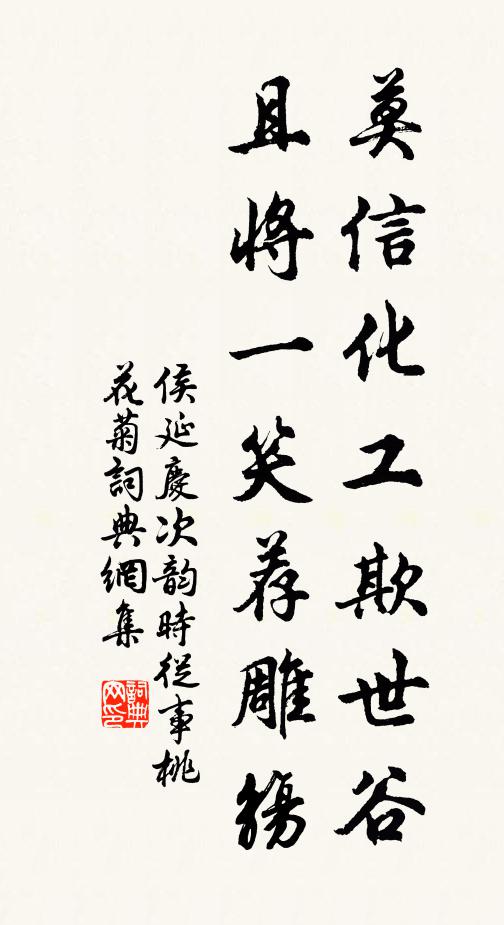 莫信化工欺世谷
且將一笑荐雕觴
侯延慶次韵時從事桃
花菊詞典網集
詞典
网印